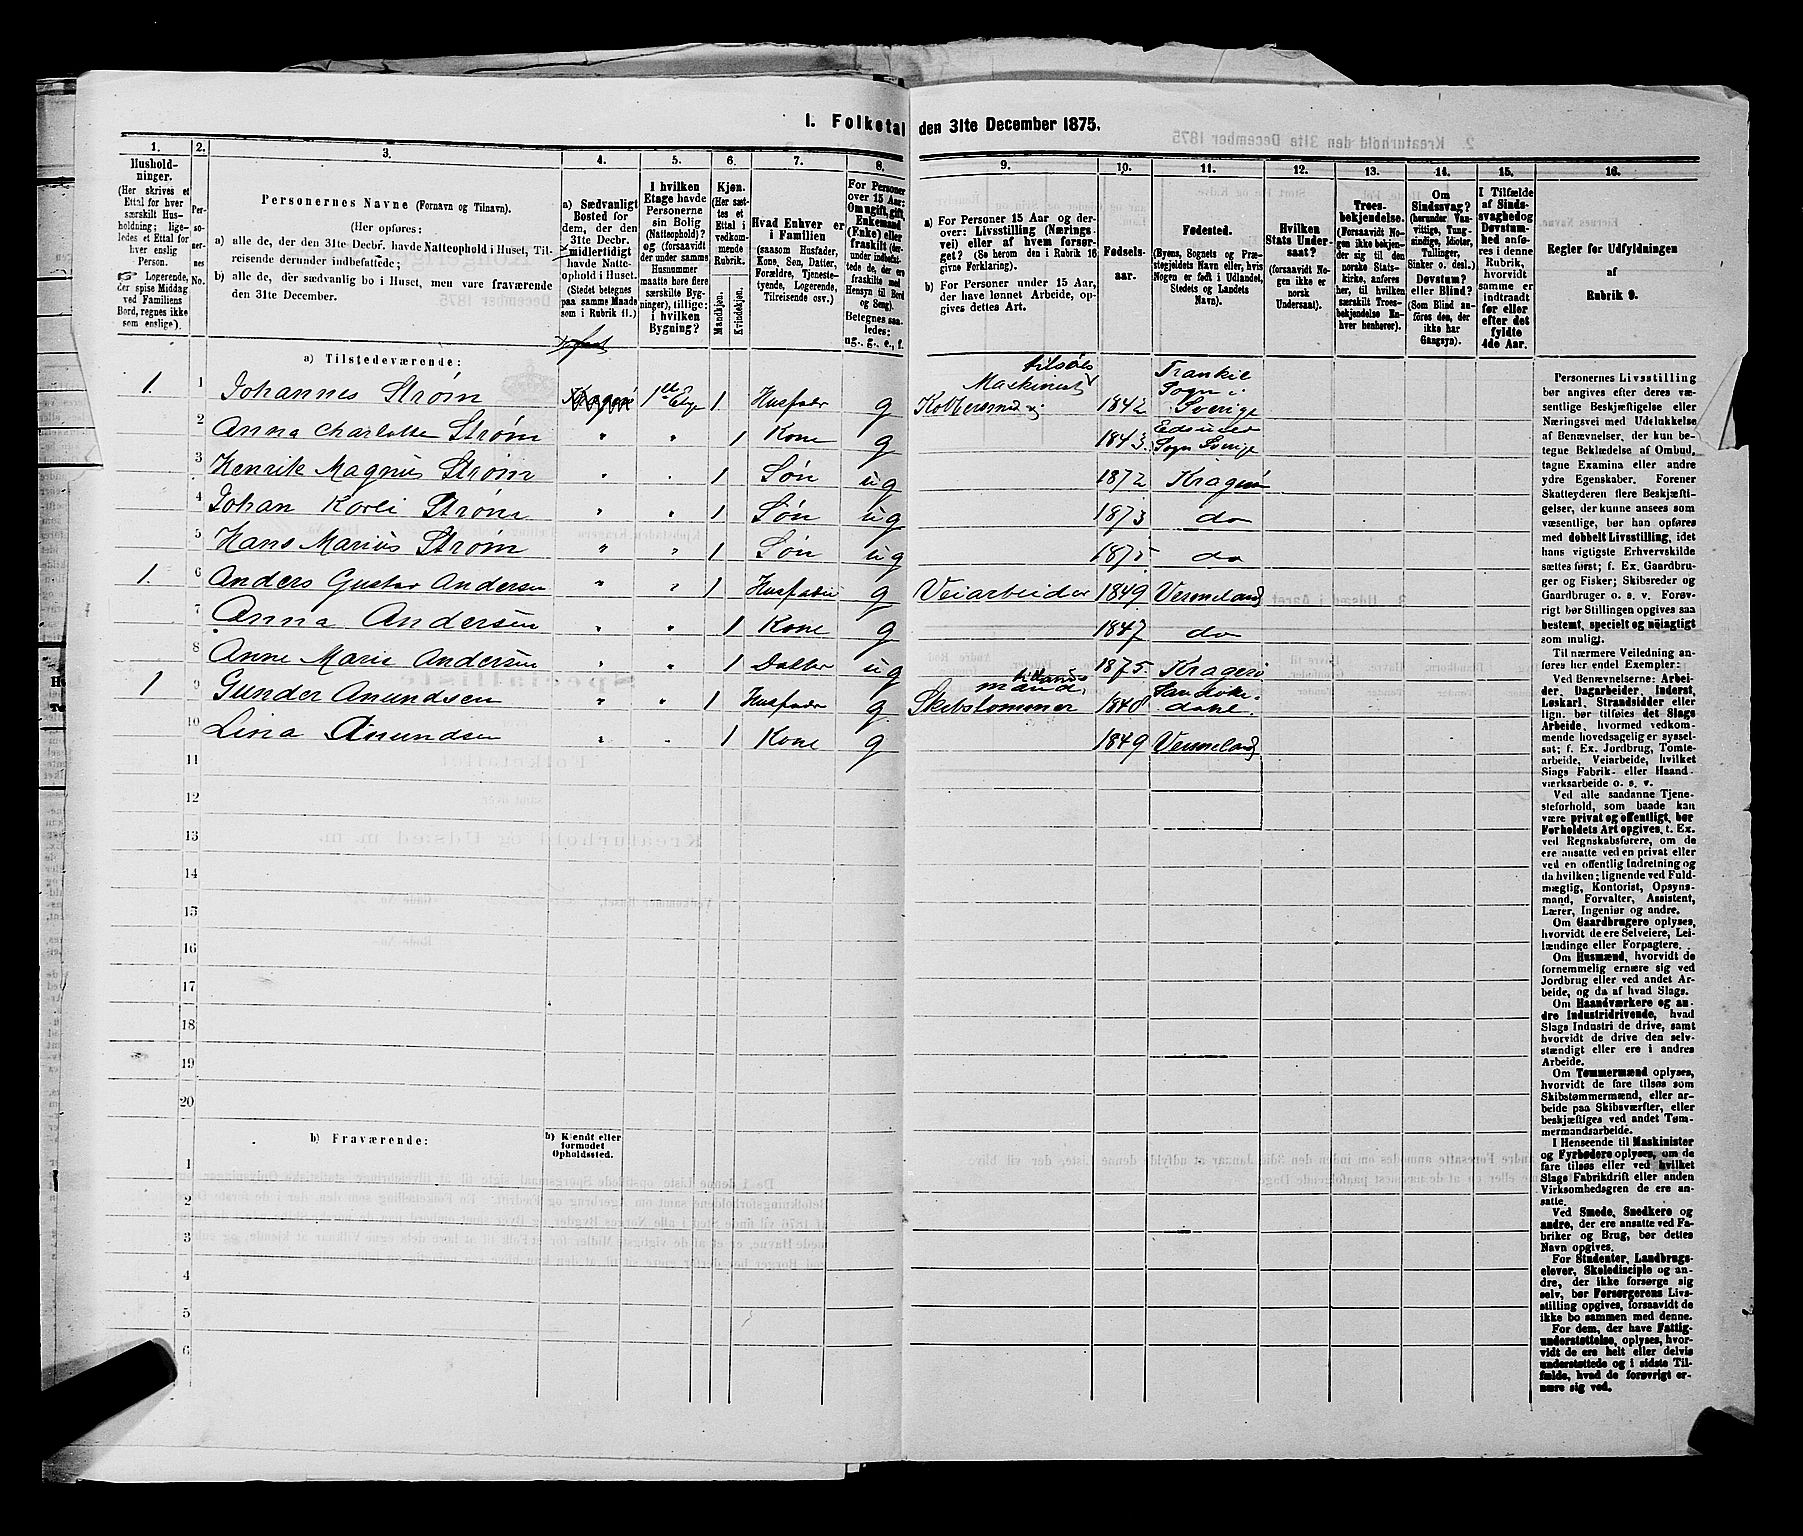 I. Folketal den 31te December 1875.
1. 2. 3. 4. 5. 6. 7. 8. 9. 10. 11. 12. 13. 14. 15. 16.
Hushold-
ninger.
(Her skrives et
Ettal for hver
særskilt Hus-
holdning; lige-
ledes et Ettal for
hver enslig
Person.
☞ Logerende,
der spise Middag
ved Familiens
Bord, regnes ikke
som enslige).
Per-
so-
ner-
nes
No.
Personernes Navne (Fornavn og Tilnavn).
(Her opføres:
a) alle de, der den 31te Decbr. havde Natteophold i Huset, Til-
reisende derunder indbefattede;
b) alle de, der sædvanlig bo i Huset, men vare fraværende
den 31te December.
a) Sædvanligt
Bosted for
dem, der den
31te Decbr.
midlertidigt
havde Natte-
ophold i Huset.
(Stedet betegnes
paa samme Maade
som i Rubrik 11.)
I hvilken
Etage havde
Personerne
sin Bolig
(Natteophold)?
og (forsaavidt
der under samme
Husnummer
maatte høre flere
særskilte Byg-
ninger), tillige:
i hvilken
Bygning?
Kjøn.
(Her sæt-
tes et
Ettal i
vedkom-
mende
Rubrik.
Mandkjøn.
Kvindekjøn.
Hvad Enhver er
i Familien
(saasom Husfader,
Kone, Søn, Datter,
Forældre, Tjeneste-
tyende, Logerende,
Tilreisende osv.)
For Personer
over 15 Aar:
Om ugift, gift,
Enkemand
(Enke) eller
fraskilt (der-
under indbefat-
tede de, der ere
fraskilte med
Hensyn til Bord
og Seng).
Betegnes saa-
ledes:
ug., g., e., f.
a) For Personer 15 Aar og der-
over: Livsstilling (Nærings-
vei) eller af hvem forsør-
get? (Se herom den i Rubrik 16
givne Forklaring).
b) For Personer under 15 Aar,
der have lønnet Arbeide, op-
gives dettes Art.
Fødsels-
aar.
Fødested.
(Byens, Sognets og Præ-
stegjeldets Navn eller, hvis
Nogen er født i Udlandet,
Stedets og Landets
Navn).
Hvilken
Stats Under-
saat?
(forsaavidt No-
gen ikke er
norsk
Undersaat).
Troes-
bekjendelse.
(Forsaavidt No-
gen ikke bekjen-
der sig til den
norske Stats-
kirke, anføres
her, til hvilken
særskilt Troes-
bekjendelse En-
hver henhører).
Om
Sindssvag?
(herunder Van-
vittige, Tung-
sindige, Idioter,
Tullinger,
Sinker o. desl.)
Døvstum?
eller Blind?
(Som Blind an-
føres den, der
ikke har
Gangsyn).
I Tilfælde
af Sinds-
svaghed og
Døvstum-
hed anfø-
res i denne
Rubrik,
hvorvidt
samme er
indtraadt
før eller
efter det
fyldte
4de Aar.
Regler for Udfyldningen
af
Rubrik 9.
a) Tilstedeværende:
1. 1 Johannes Strøm 1ste Etage 1 Husfader g Maskinist tilsøs Kobbersmed 1842 Trankil Sogn i Sverige
2 Anna Charlotte Strøm " " 1 Kone g 1843 Sogn Sverige
3 Henrik Magnus Strøm " " 1 Søn ug 1872 Kragerø
4 Johan Karli Strøm " " 1 Søn ug 1873 do
5 Hans Marius Strøm " " 1 Søn ug 1875 do
1. 6 Anders Gustav Andersen " " 1 Husfader g Veiarbeider 1849 Vermeland
7 Anna Andersen " " 1 Kone g 1847 do
8 Anne Marie Andersen " " 1 Datter ug 1875 Kragerø
1 9 Gunder Anundsen " " 1 Husfader g Skibstømmermand 1840 Sandøkedahl
10 Lina Anundsen " " 1 Kone g 1849 Vermeland
11
12
13
14
15
16
17
18
19
20
b) Fraværende:
b) Kjendt eller
formodet
Opholdssted.
1
2
3
4
5
6
Personernes Livsstilling
bør angives efter deres væ-
sentlige Beskjæftigelse eller
Næringsvei med Udelukkelse
af Benævnelser, der kun be-
tegne Beklædelse af Ombud,
tagne Examina eller andre
ydre Egenskaber. Forener
Skatteyderen flere Beskjæfti-
gelser, der kunne ansees som
væsentlige, bør han opføres
med dobbelt Livsstilling, idet
hans vigtigste Erhvervskilde
sættes først; f. Ex. Gaardbru-
ger og Fisker; Skibsreder og
Gaardbruger o. s. v. Forøv-
rigt bør Stillingen opgives saa
bestemt, specielt og nøiagtigt
som muligt.
Til nærmere Veiledning an-
føres her endel Exempler:
Ved Benævnelserne: Arbei-
der, Dagarbeider, Inderst,
Løskarl, Strandsidder eller
lign. bør tilføies det Slags
Arbeide, hvormed vedkom-
mende hovedsagelig er syssel-
sat; f. Ex. Jordbrug, Tomte-
arbeide, Veiarbeide, hvilket
Slags Fabrik- eller Haand-
værksarbeide o. s. v.
Ved alle saadanne Tjene-
steforhold, som baade kan
være privat og offentligt, bør
Forholdets Art opgives, t. Ex.
ved Regnskabsførere, om de
ere ansatte ved en privat eller
ved en offentlig Indretning og
da hvilken; lignende ved Fuld-
mægtig, Kontorist, Opsyns-
mand, Forvalter, Assistent,
Lærer, Ingeniør og andre.
Om Gaardbrugere oplyses,
hvorvidt de ere Selveiere, Lei-
lændinge eller Forpagtere.
Om Husmænd, hvorvidt de
fornemmelig ernære sig ved
Jordbrug eller ved andet Ar-
beide, og da af hvad Slags.
Om Haandværkere og an-
dre Industridrivende, hvad
Slags Industri de drive, samt
hvorvidt de drive den selv-
stændigt eller ere i andres
Arbeide.
Om Tømmermænd oplyses,
hvorvidt de fare tilsøs som
Skibstømmermænd, eller ar-
beide paa Skibsværfter, eller
beskjæftiges ved andet Tøm-
mermandsarbeide.
I Henseende til Maskinister
og Fyrbødere oplyses, om de
fare tilsøs eller ved hvilket
Slags Fabrikdrift eller anden
Virksomhedsgren de ere an-
satte.
Ved Smede, Snedkere og
andre, der ere ansatte ved Fa-
briker og Brug, bør dettes
Navn opgives.
For Studenter, Landbrugs-
elever, Skoledisciple og an-
dre, der ikke forsørge sig
selv, bør Forsørgerens Livs-
stilling opgives, forsaavidt de
ikke bo sammen med denne.
For dem, der have Fattig-
understøttelse, oplyses, hvor-
vidt de ere helt eller delvis
understøttede og i sidste Til-
fælde, hvad de forøvrigt er-
nære sig ved.